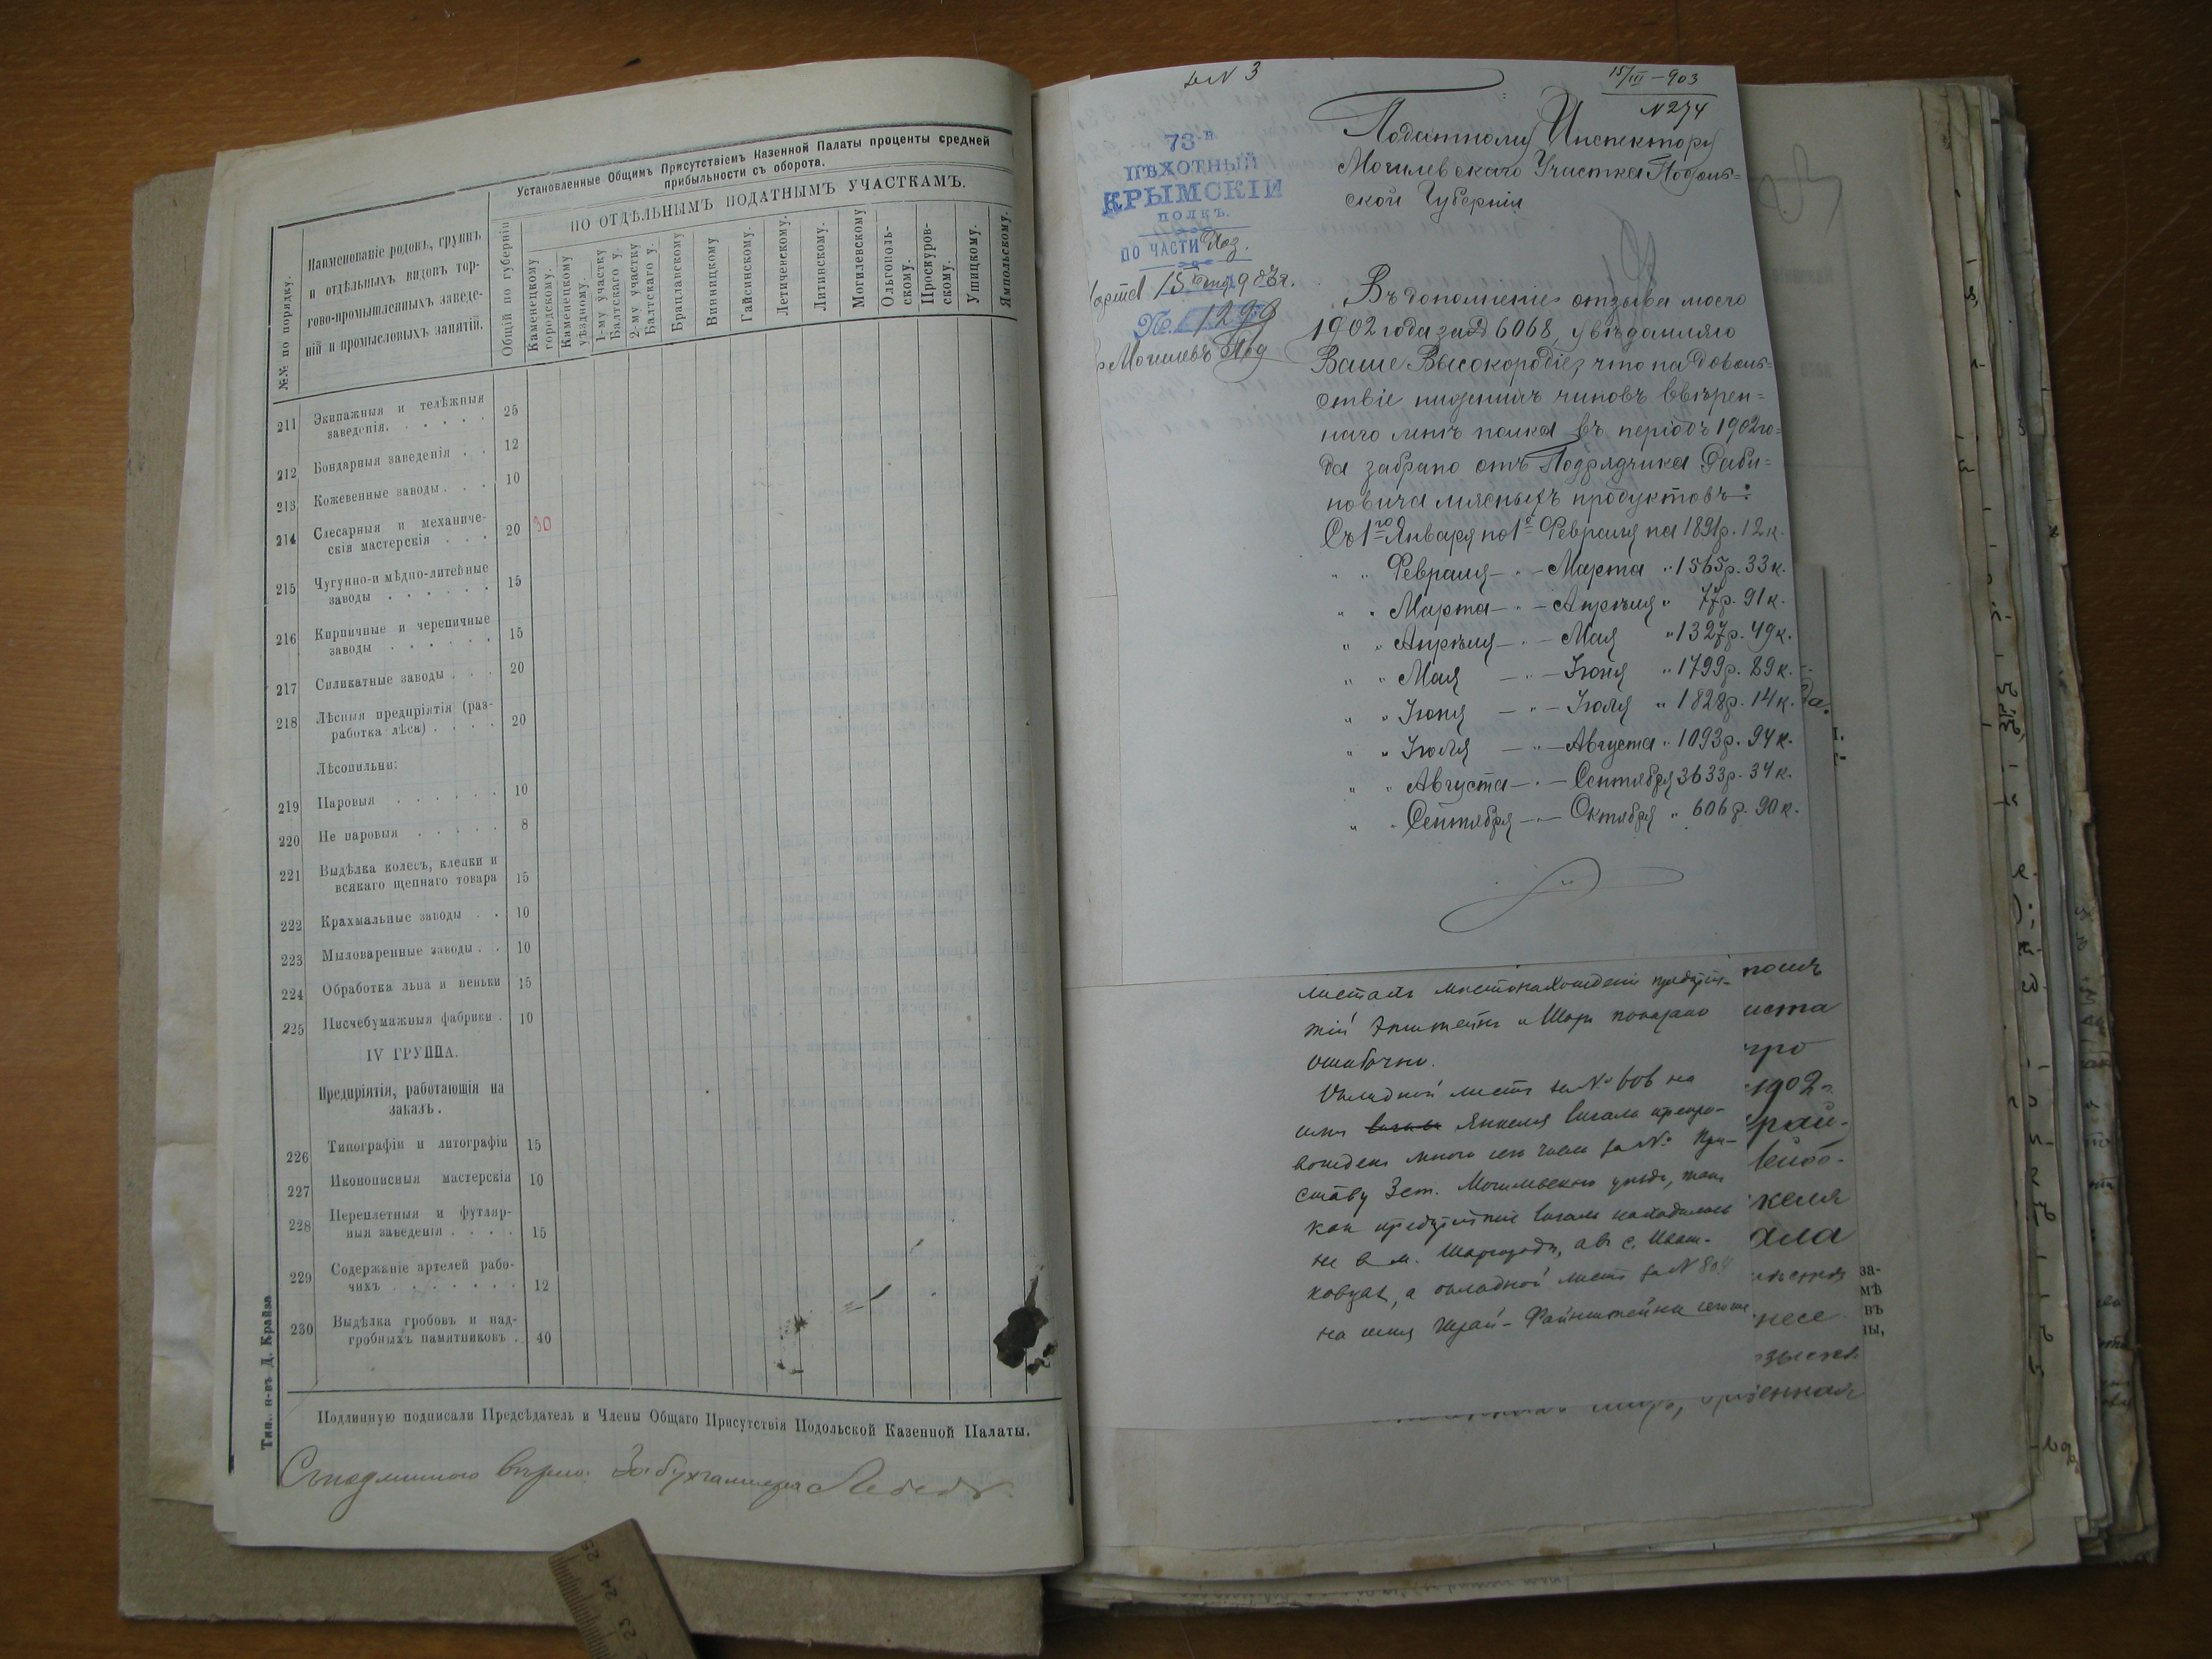 Установленные Общимъ Присутствіемъ Казенной Палаты проценты средней
прибыльности съ оборота.
ПО ОТДѢЛЬНЫМЪ ПОДАТНЫМЪ УЧАСТКАМЪ.
№№ по порядку.
Наименованіе родовъ, группъ
и отдѣльныхъ видовъ тор-
гово-промышленныхъ заведе-
ній и промысловыхъ занятій.
Общій по губерніи
Каменецкому
городскому.
Каменецкому
уѣздному.
1-му участку
Балтскаго у.
2-му участку
Балтскаго у.
Брацлавскому
Винницкому
Гайсинскому.
Летичевскому.
Литинскому.
Могилевскому
Ольгополь-
скому.
Проскуров-
скому.
Ушицкому.
Ямпольскому.
211 Экипажныя и телѣжныя
заведенія. . . . . . 25
212 Бондарныя заведенія . . 12
213 Кожевенные заводы . . . 10
214 Слесарныя и механиче-
скія мастерскія . . . 20 30
215 Чугунно-и мѣдно-литейные
заводы . . . . . . 15
216 Кирпичные и черепичные
заводы . . . . . . 15
217 Силикатные заводы . . . 20
218 Лѣсныя предпріятія (раз-
работка лѣса) . . . . 20
Лѣсопильни:
219 Паровыя . . . . . . 10
220 Не паровыя . . . . . 8
221 Выдѣлка колесъ, клепки и
всякаго щепнаго товара 15
222 Крахмальные заводы . . 10
223 Мыловаренные заводы . . 10
224 Обработка льна и пеньки 15
225 Писчебумажныя фабрики . 10
IV ГРУППА.
Предпріятія, работающія на
заказъ.
226 Типографіи и литографіи 15
227 Иконописныя мастерскія 10
228 Переплетныя и футляр-
ныя заведенія . . . . 15
229 Содержаніе артелей рабо-
чихъ . . . . . . . 12
230 Выдѣлка гробовъ и над-
гробныхъ памятниковъ . 40
Подлинную подписали Предсѣдатель и Члены Общаго Присутствія Подольской Казенной Палаты.
Съ подлиннымъ вѣрно: За бухгалтера
Тип. н-въ Д. Крайза
№ 3
15/III - 903
№ 274
73-й
ПѢХОТНЫЙ
КРЫМСКІЙ
ПОЛКЪ.
ПО ЧАСТИ Хоз.
Марта 15 дня 1903 г.
№ 1298
г. Могилевъ Под
Податному Инспектору
Могилевскаго Участка Подоль=
ской Губерніи
Въ дополненіе отзыва моего
1902 года за № 6068, увѣдомляю
Ваше Высокородіе, что на доволь=
ствіе нижнихъ чиновъ ввѣрен=
наго мнѣ полка въ періодъ 1902 го=
да забрано отъ Подрядчика Раби=
новича мясныхъ продуктовъ:
Съ 1го Января по 1е Февраля на 1891 р. 12 к.
" " Февраля — " — Марта " 1565 р. 33 к.
" " Марта — " — Апрѣля " 77 р. 91 к.
" " Апрѣля — " — Мая " 1327 р. 49 к.
" " Мая — " — Іюня " 1799 р. 89 к.
" " Іюня — " — Іюля " 1828 р. 14 к.
" " Іюля — " — Августа " 1093 р. 94 к.
" " Августа — " — Сентября 3633 р. 34 к.
" " Сентября — " — Октября " 606 р. 90 к.
листахъ мѣстонахожденіе предпрія-
тій и Шоръ показано
ошибочно.
Окладной листъ за № 606 на
имя Янкеля Вигали препро-
вожденъ мною сего числа за № При-
ставу 3 ст. Могилевскаго уѣзда, такъ
какъ предпріятіе находилось
не въ м. Шаргородѣ, а въ с. Иваш-
ковцахъ, а окладной листъ за №
на имя Файнштейна
1902
келя
несе
за-
мѣ
въ
ны,
23 24 25